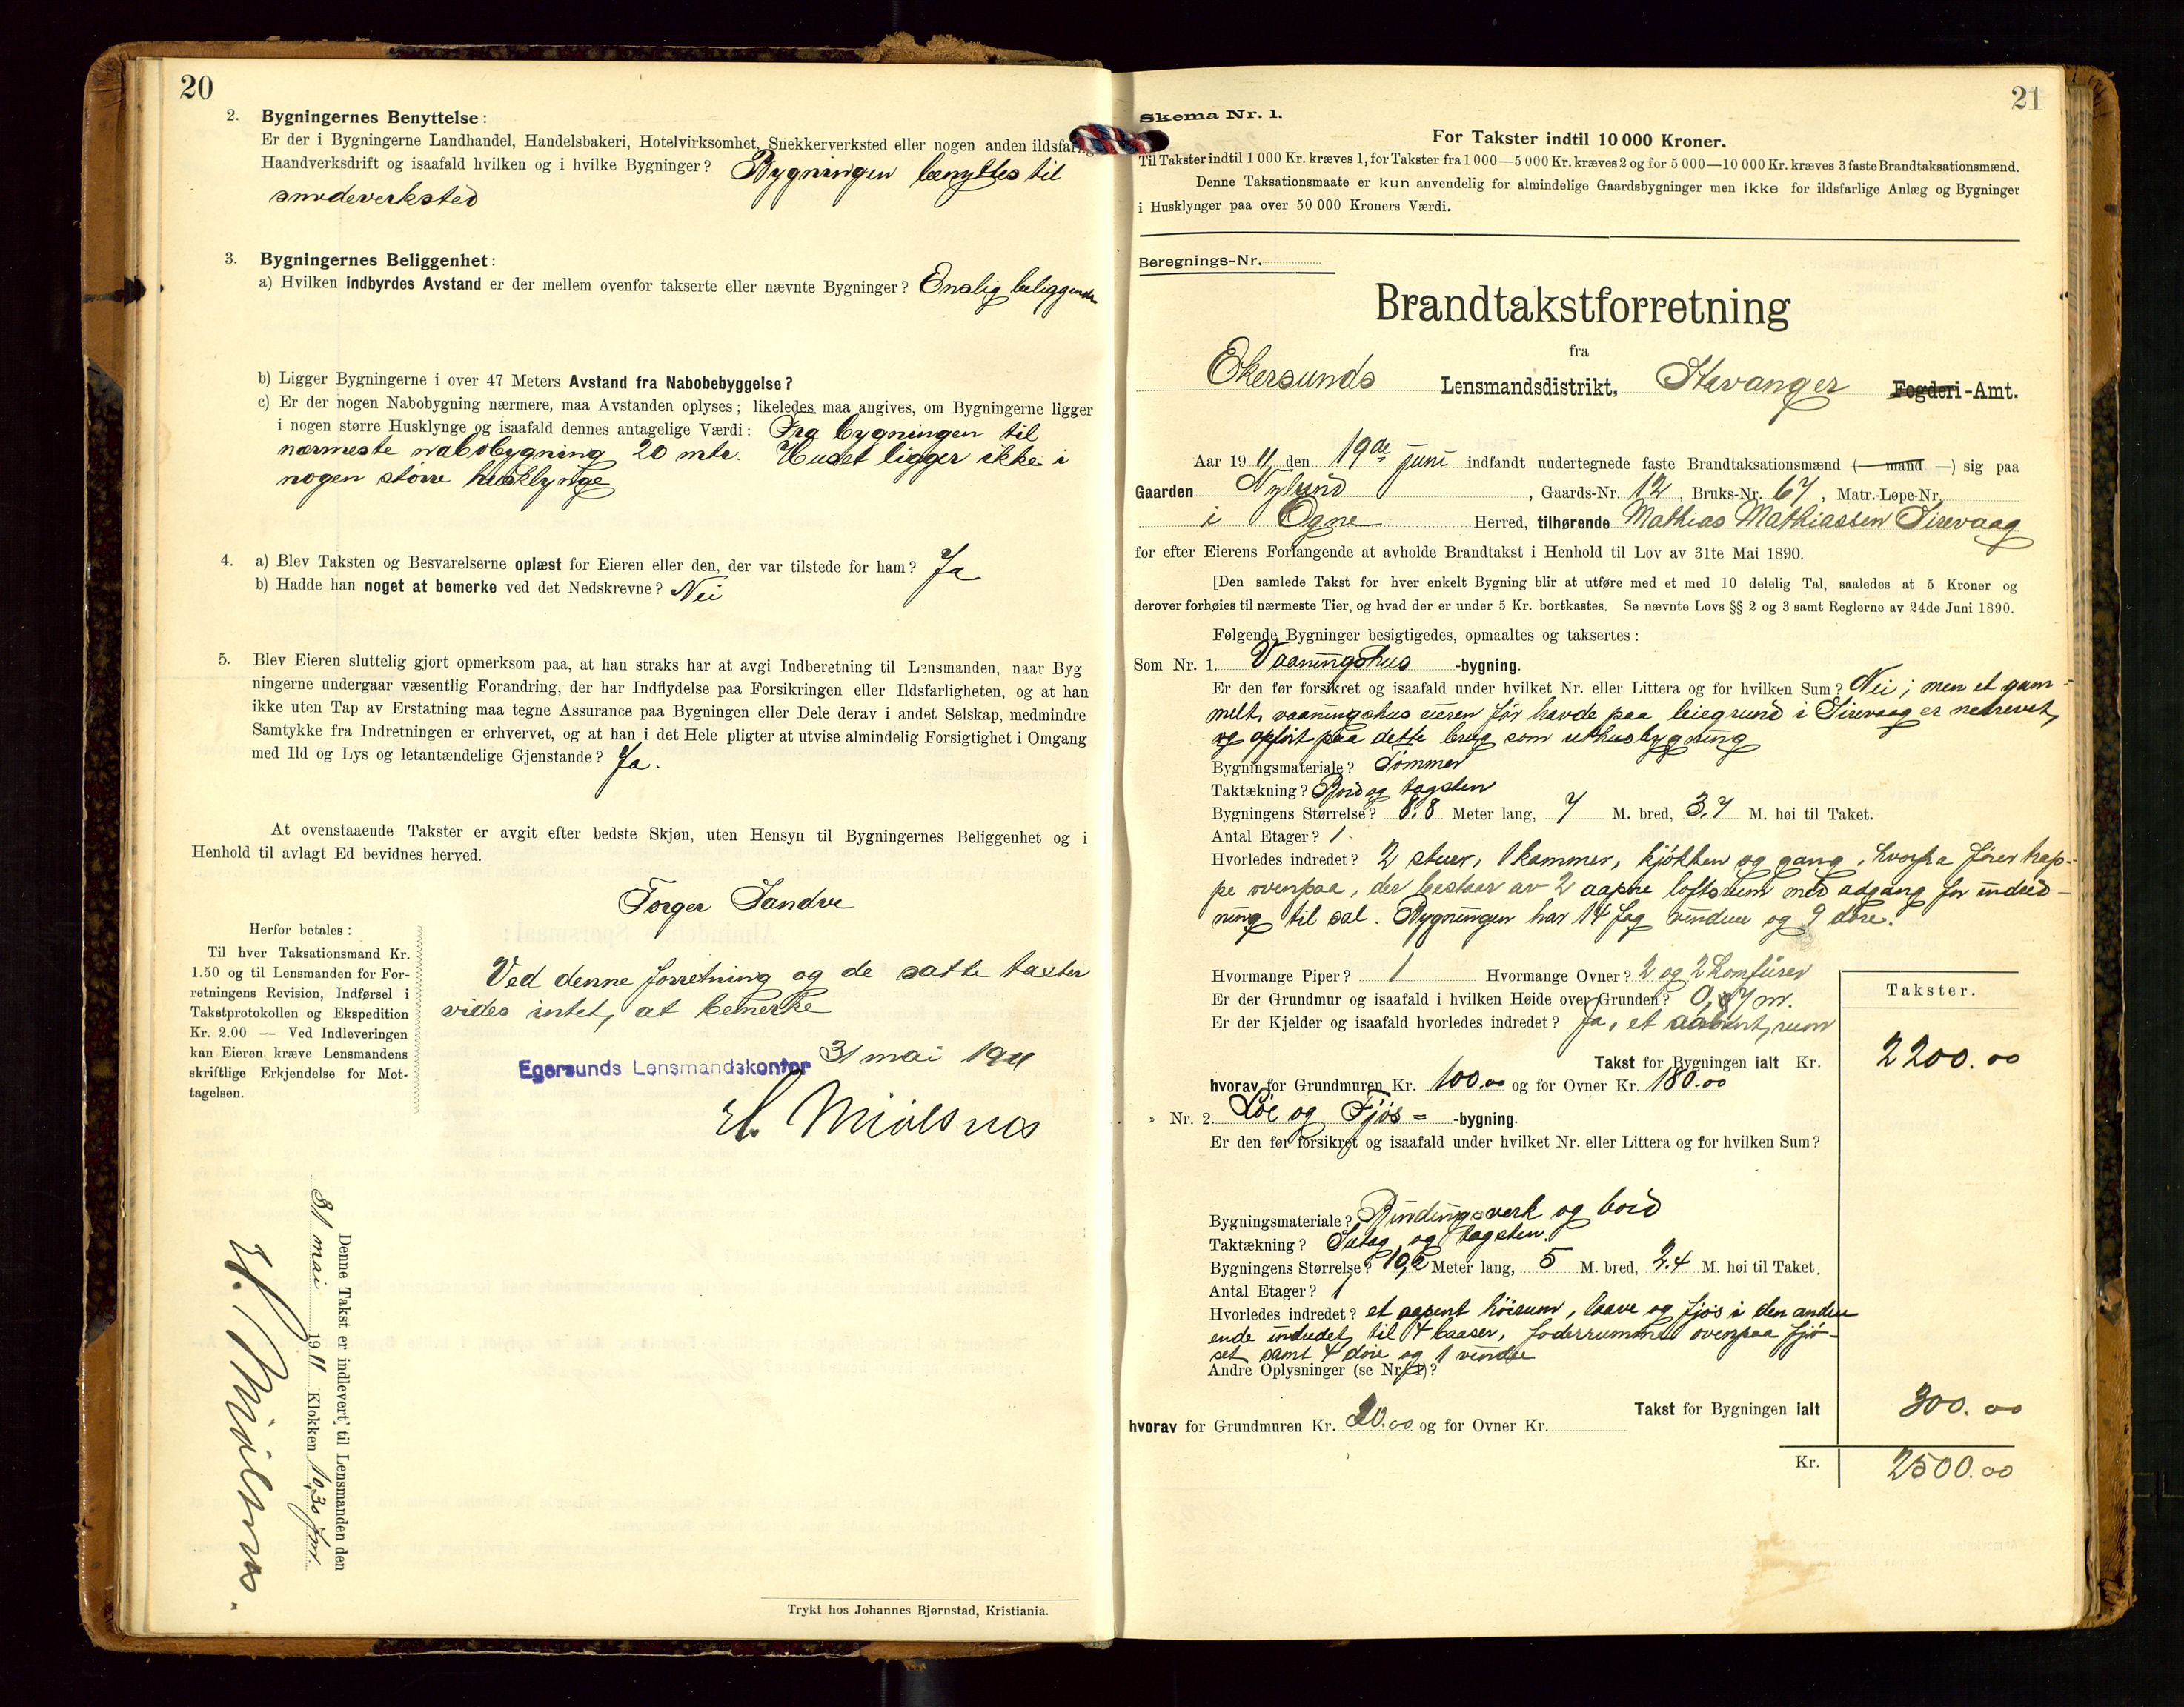 20
2. Bygningernes Benyttelse:
Er der i Bygningerne Landhandel, Handelsbakeri, Hotelvirksomhet, Snekkerverksted eller nogen anden ildsfarlig
Haandverksdrift og isaafald hvilken og i hvilke Bygninger? Bygningen benyttes til
smedeverksted
3. Bygningernes Beliggenhet:
a) Hvilken indbyrdes Avstand er der mellem ovenfor takserte eller nævnte Bygninger? Enslig beliggende
b) Ligger Bygningerne i over 47 Meters Avstand fra Nabobebyggelse?
c) Er der nogen Nabobygning nærmere, maa Avstanden oplyses; likeledes maa angives, om Bygningerne ligger
i nogen større Husklynge og isaafald dennes antagelige Værdi: Fra bygningen til
nærmeste nabobygning 20 mtr. Huset ligger ikke i
nogen større husklynge
4. a) Blev Taksten og Besvarelserne oplæst for Eieren eller den, der var tilstede for ham? Ja
b) Hadde han noget at bemerke ved det Nedskrevne? Nei
5. Blev Eieren sluttelig gjort opmerksom paa, at han straks har at avgi Indberetning til Lensmanden, naar Byg
ningerne undergaar væsentlig Forandring, der har Indflydelse paa Forsikringen eller Ildsfarligheten, og at han
ikke uten Tap av Erstatning maa tegne Assurance paa Bygningen eller Dele derav i andet Selskap, medmindre
Samtykke fra Indretningen er erhvervet, og at han i det Hele pligter at utvise almindelig Forsigtighet i Omgang
med Ild og Lys og letantændelige Gjenstande? Ja.
At ovenstaaende Takster er avgit efter bedste Skjøn, uten Hensyn til Bygningernes Beliggenhet og i
Henhold til avlagt Ed bevidnes herved.
Torger Sandve
Herfor betales:
Til hver Taksationsmand Kr.
1.50 og til Lensmanden for For-
retningens Revision, Indførsel i
Takstprotokollen og Ekspedition
Kr. 2.00 — Ved Indleveringen
kan Eieren kræve Lensmandens
skriftlige Erkjendelse for Mot-
tagelsen.
Ved denne forretning og de satte taxter
vides intet at bemerke
Egersunds Lensmandskontor 31 mai 1911
H. Mjølsnes
Denne Takst er indlevert til Lensmanden den
31 mai 1911 Klokken 10,30 fm.
H. Mjølsnes.
Trykt hos Johannes Bjørnstad, Kristiania.
21
Skema Nr. 1.
For Takster indtil 10 000 Kroner.
Til Takster indtil 1 000 Kr. kræves 1, for Takster fra 1 000—5 000 Kr. kræves 2 og for 5 000—10 000 Kr. kræves 3 faste Brandtaksationsmænd.
Denne Taksationsmaate er kun anvendelig for almindelige Gaardsbygninger men ikke for ildsfarlige Anlæg og Bygninger
i Husklynger paa over 50 000 Kroners Værdi.
Beregnings-Nr.
Brandtakstforretning
fra
Ekersunds Lensmandsdistrikt, Stavanger Fogderi-Amt.
Aar 1911, den 19de juni indfandt undertegnede faste Brandtaksationsmænd (— mand —) sig paa
Gaarden Nylund, Gaards-Nr. 12, Bruks-Nr. 67, Matr.-Løpe-Nr.
i Ogne Herred, tilhørende Mathias Mathiassen Sirevaag
for efter Eierens Forlangende at avholde Brandtakst i Henhold til Lov av 31te Mai 1890.
[Den samlede Takst for hver enkelt Bygning blir at utføre med et med 10 delelig Tal, saaledes at 5 Kroner og
derover forhøies til nærmeste Tier, og hvad der er under 5 Kr. bortkastes. Se nævnte Lovs §§ 2 og 3 samt Reglerne av 24de Juni 1890.
Følgende Bygninger besigtigedes, opmaaltes og taksertes:
Som Nr. 1. Vaaningshus -bygning.
Er den før forsikret og isaafald under hvilket Nr. eller Littera og for hvilken Sum? Nei; men et gam-
melt vaaningshus eieren før havde paa leiegrund i Sirevaag er nedrevet,
og opført paa dette brug som uthusbygning
Bygningsmateriale? Tømmer
Taktækning? Bord og tagsten
Bygningens Størrelse? 8.8 Meter lang, 7 M. bred, 3.7 M. høi til Taket.
Antal Etager? 1
Hvorledes indredet? 2 stuer, 1 kammer, kjøkken og gang, hvorfra fører trap-
pe ovenpaa, der bestaar av 2 aapne loftsrum med adgang for indred-
ning til sal. Bygningen har 14 fag vinduer og 9 døre.
Hvormange Piper? 1 Hvormange Ovner? 2 og 2 komfurer
Er der Grundmur og isaafald i hvilken Høide over Grunden? 0,7 m.
Er der Kjelder og isaafald hvorledes indredet? Ja, et rum
Takster.
Takst for Bygningen ialt Kr. 2200.00
hvorav for Grundmuren Kr. 100.00 og for Ovner Kr. 180.00
» Nr. 2. Løe og Fjøs= -bygning.
Er den før forsikret og isaafald under hvilket Nr. eller Littera og for hvilken Sum?
Bygningsmateriale? Bindingsverk og bord
Taktækning? Sutag og tagsten.
Bygningens Størrelse? 10,2 Meter lang, 5 M. bred, 2.4 M. høi til Taket.
Antal Etager? 1
Hvorledes indredet? et aapent høirum, laave og fjøs i den anden
ende indredet til 4 baaser, foderrummet ovenpaa fjø-
set samt 4 døre og 1 vindu
Andre Oplysninger (se Nr. 1)?
Takst for Bygningen ialt 300.00
hvorav for Grundmuren Kr. 20.00 og for Ovner Kr.
Kr. 2500.00